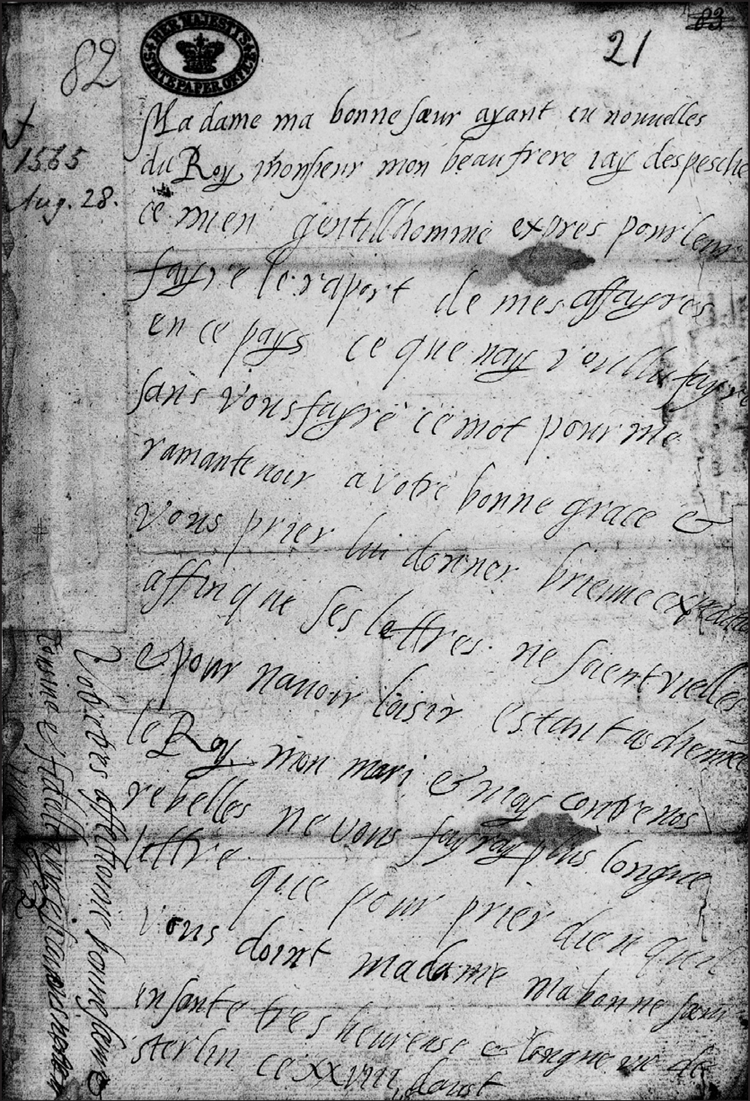 82
HER MAJESTY'S
STATE PAPER OFFICE
21
83
1565
Aug. 28.
Madame ma bonne sœur ayant eu nouvelles
du Roy monsieur mon beau frere iay despesche
ce mien gentillhomme expres pour leur
fayre le raport de mes affayres
en ce pays ce que nay voullu fayre
sans vous fayre ce mot pour me
ramantevoir a votre bonne grace &
vous prier lui donner briefve
affin que ses lettres ne soient vielles
e pour navoir loisir estant
le Roy mon mari & moy contre nos
rebelles ne vous fayray plus longue
lettre que pour prier dieu quil
vous doint madame ma bonne sœur
en sante tres heureuse & longue vie de
sterlin ce XXVIII daust
Votre tres affectionne bonne sœur